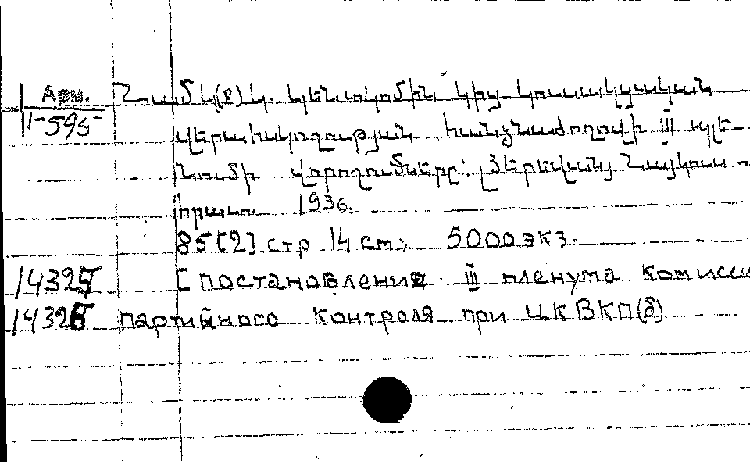 Арм. Համկ(բ)կ. Կենտկոմին կից կուսակցական
1-595 վերահսկողության հանձնաժողովի III պլե-
նումի վորոշումները: [Յերեվան] Հայկուս-
հրատ. 1936.
85[2] стр 14 см. 5000 экз.
14325 [Постановление III пленума Комиссии
14326 партийного контроля при ЦК ВКП(б)